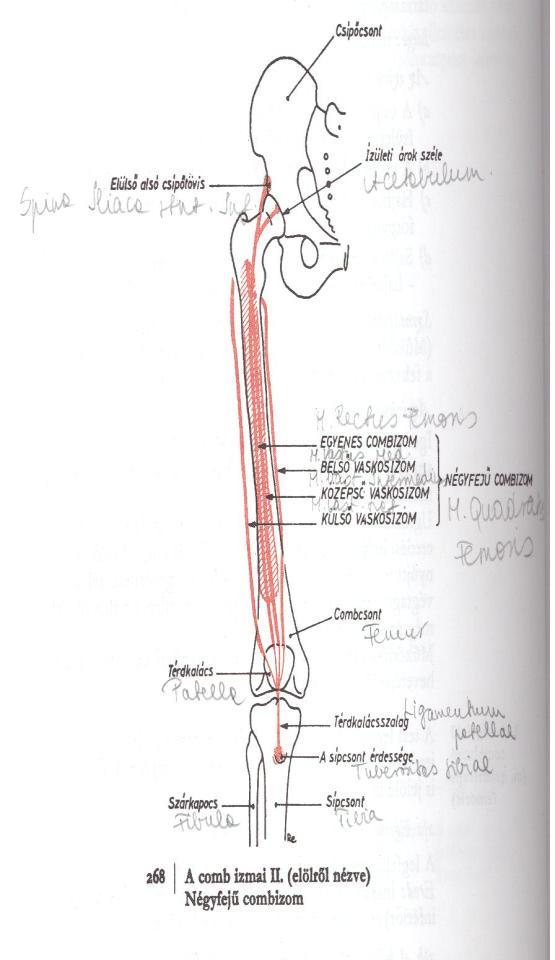 Csípőcsont
Ízületi árok széle
Acetabulum.
Elülső alsó csípőtövis
Spina Iliaca Ant. Inf.
M. Rectus Femoris
EGYENES COMBIZOM
M. Vastus Med.
BELSŐ VASKOSIZOM
M. Vast. Intermedius
KÖZÉPSŐ VASKOSIZOM
M. Vast. Lat.
KÜLSŐ VASKOSIZOM
NÉGYFEJŰ COMBIZOM
M. Quadriceps
Femoris
Combcsont
Femur
Térdkalács
Patella
Térdkalácsszalag
Ligamentum
patellae
A sípcsont érdessége
Tuberositas tibiae
Szárkapocs
Fibula
Sípcsont
Tibia
268
A comb izmai II. (elölről nézve)
Négyfejű combizom